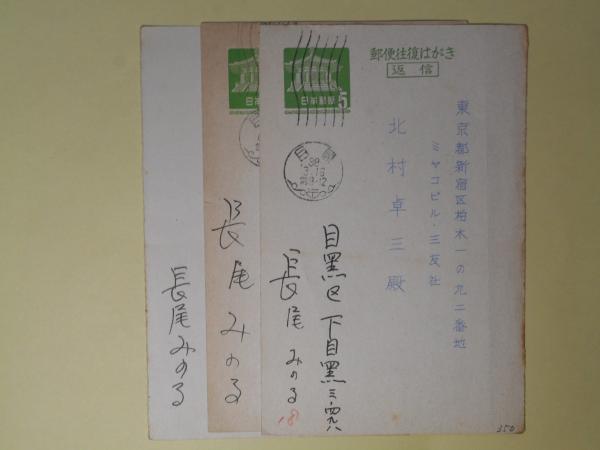 郵便往復はがき
返信
東京都新宿区柏木一の九二番地
ミヤコビル・三友社
北村卓三殿
日本郵便
5
目黒
38
前8-12
目黒区下目黒三・四九八
長尾みのる
18
350
日本郵
長尾みのる
長尾みのる